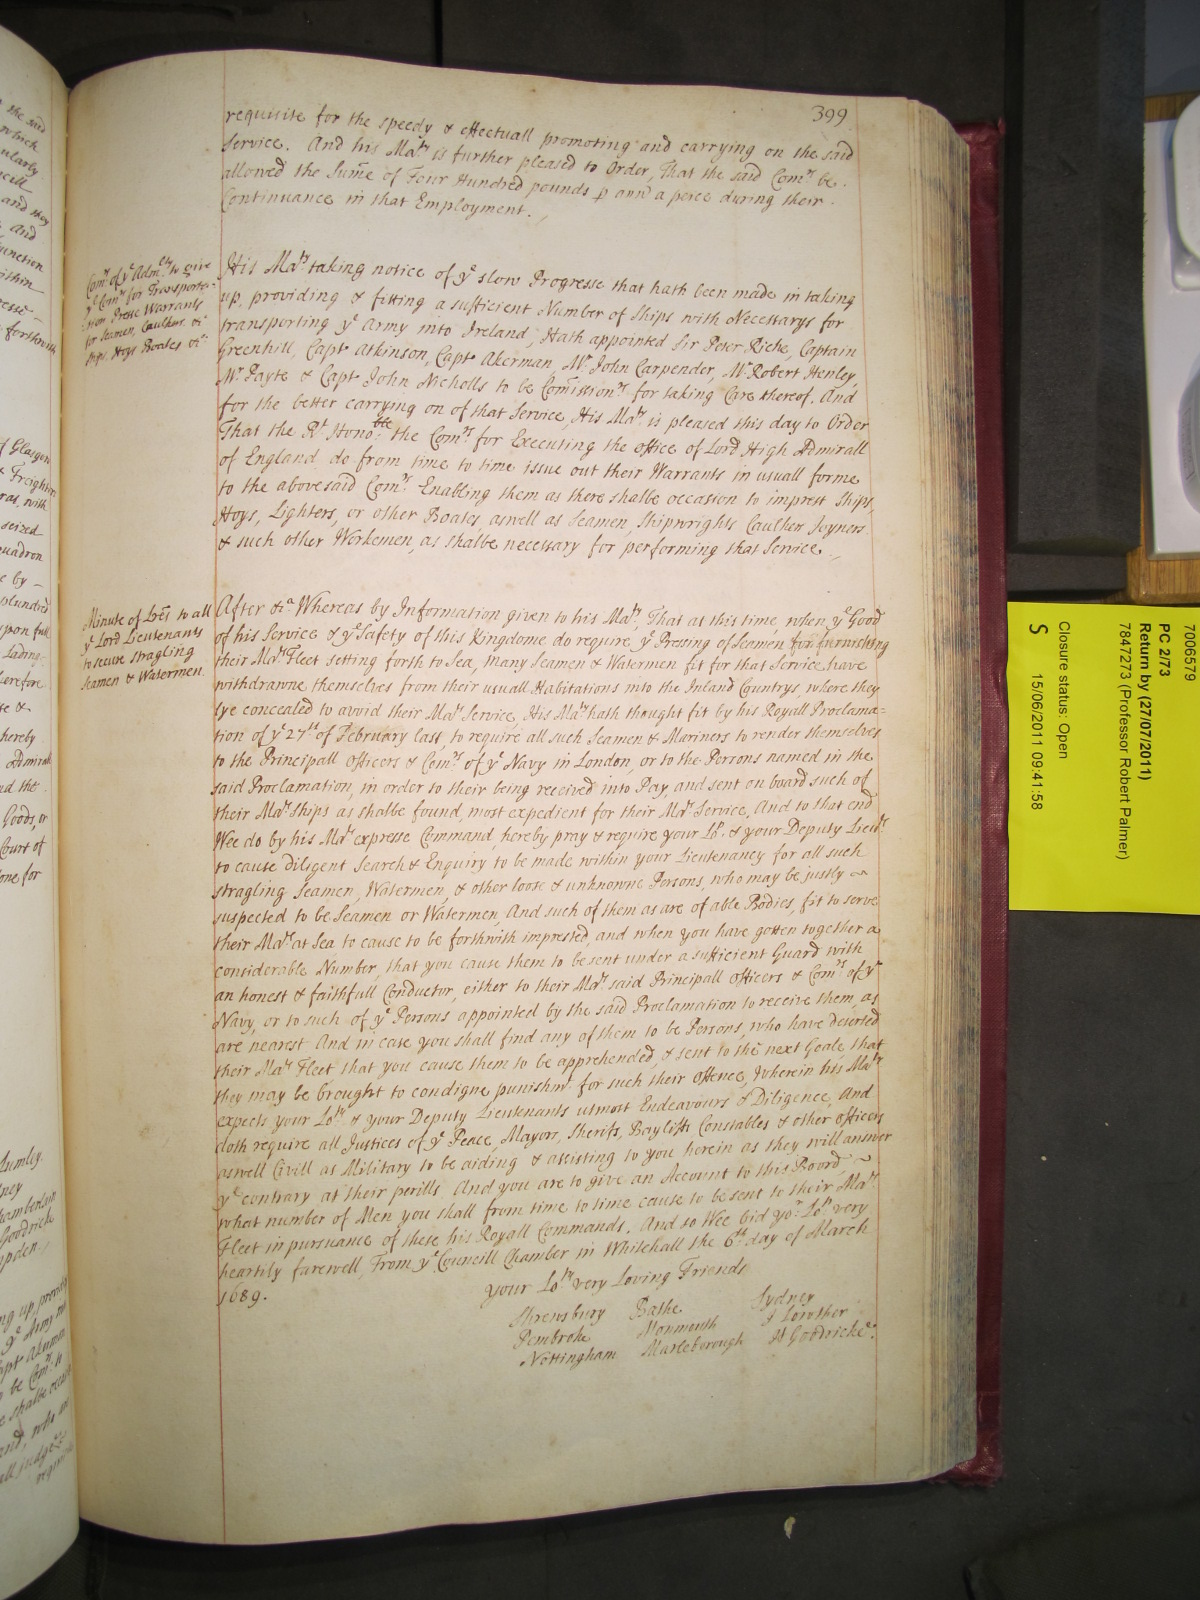 399
requisite for the speedy & effectuall promoting and carrying on the said
Service. And his Ma.ty is further pleased to Order, That the said Com.rs be
allowed the Sum̄e of Four Hundred pounds p ann̄ a peice during their
Continuance in that Employment.
Com.rs of y.e Adm.lty to give
y.e Com.rs for Transporta-
tion Presse Warrants
for Seamen, Caulkers &c
Ships, Hoys Boates &c.
His Ma.ty taking notice of y.e slow Progresse that hath been made in taking
up, providing & fitting a sufficient Number of Ships with Necessarys for
transporting y.e Army into Ireland, Hath appointed Sir Peter Riche, Captain
Greenhill, Cap.t Atkinson, Cap.t Akerman, M.r John Carpender, M.r Robert Henley,
M.r Payte & Cap.t John Nicholls to be Com̄ission.rs for taking Care thereof. And
for the better carrying on of that Service, His Ma.ty is pleased this day to Order
That the R.t Hono.ble the Com.rs for Executing the office of Lord High Admirall
of England do from time to time issue out their Warrants in usuall forme
to the abovesaid Com.rs Enabling them as there shalbe occasion to imprest Ships,
Hoys, Lighters, or other Boates, aswell as Seamen, Shipwrights Caulkers Joyners
& such other Workemen, as shalbe necessary for performing that Service.
Minute of Lr̄es to all
y.e Lord Lieutenants
to secure stragling
Seamen & Watermen.
After &c.a Whereas by Information given to his Ma.ty, That at this time, when y.e Good
of his Service & y.e Safety of this Kingdome do require y.e Pressing of Seamen for furnishing
their Ma.ts Fleet setting forth to Sea, many Seamen & Watermen fit for that Service have
withdrawne themselves from their usuall Habitations into the Inland Countrys, where they
lye concealed to avoid their Ma.ts Service, His Ma.ty hath thought fit by his Royall Proclama=
tion of y.e 27.th of February last, to require all such Seamen & Mariners to render themselves
to the Principall Officers & Com.rs of y.e Navy in London, or to the Persons named in the
said Proclamation, in order to their being received into Pay, and sent on board such of
their Ma.ts Ships as shalbe found most expedient for their Ma.ts Service, And to that end
Wee do by his Ma.ts expresse Command, hereby pray & require your Lo.p & your Deputy Lieu.ts
to cause diligent Search & Enquiry to be made within your Lieutenancy for all such
stragling Seamen, Watermen, & other loose & unknowne Persons, who may be justly
suspected to be Seamen or Watermen, And such of them as are of able Bodies, fit to serve
their Ma.ts at Sea to cause to be forthwith imprested, and when you have gotten together a
considerable Number, that you cause them to be sent under a sufficient Guard with
an honest & faithfull Conductor, either to their Ma.ts said Principall Officers & Com.rs of y.e
Navy, or to such of y.e Persons appointed by the said Proclamation to receive them, as
are nearest And in case you shall find any of them to be Persons, who have deserted
their Ma.ts Fleet that you cause them to be apprehended, & sent to the next Goale that
they may be brought to condigne punishm.t for such their offence, Wherein his Ma.ty
expects your Lo.ps & your Deputy Lieutenants utmost Endeavours & Diligence, And
doth require all Justices of y.e Peace, Mayors, Sherifs, Baylifs Constables & other officers
aswell Civill as Military to be aiding & assisting to you herein as they will answer
y.e contrary at their perills. And you are to give an Account to this Board,
what number of Men you shall from time to time cause to be sent to their Ma.ts
Fleet in pursuance of these his Royall Commands. And so Wee bid yo.r Lo.ps very
heartily farewell, From y.e Councill Chamber in Whitehall the 6.th day of March
1689.
your Lo.ps very Loving Friends
Shrewsbury Bathe Sydney
Pembroke Monmouth J Lowther
Nottingham Marleborough H Goodricke.
7006579
PC 2/73
Return by (27/07/2011)
7847273 (Professor Robert Palmer)
Closure status: Open
S 15/06/2011 09:41:58